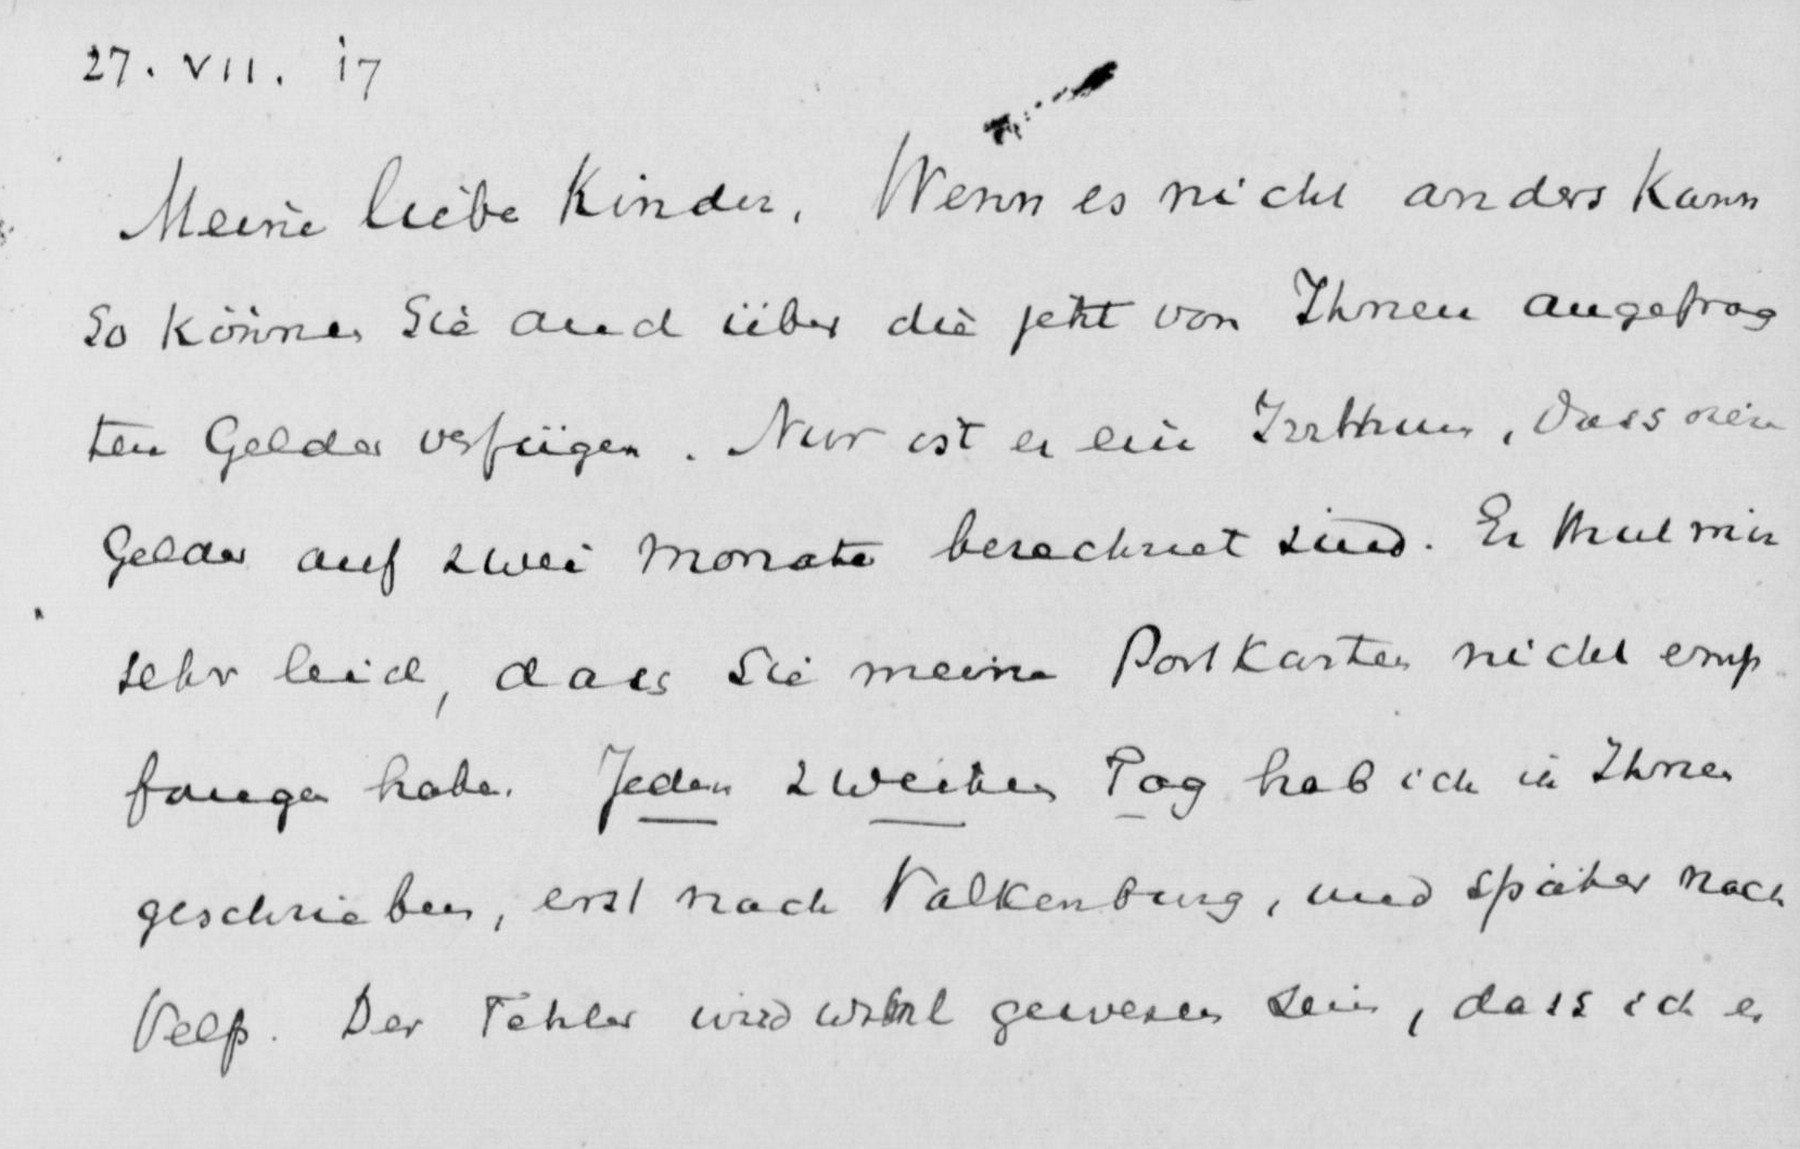 27. VII. 17
Meine liebe Kinder, Wenn es nicht anders kann
So können Sie auch über die jetzt von Ihnen angefrag
ten Gelder verfügen. Nur ist es ein Irrthum, dass
Gelder auf zwei Monate berechnet sind. Es thut mir
sehr leid, dass Sie meine Postkarten nicht emp
fangen haben. Jeden zweiten Tag hab ich Ihnen
geschrieben, erst nach Valkenburg, und später nach
Velp. Der Fehler wird wohl gewesen sein, dass ich es